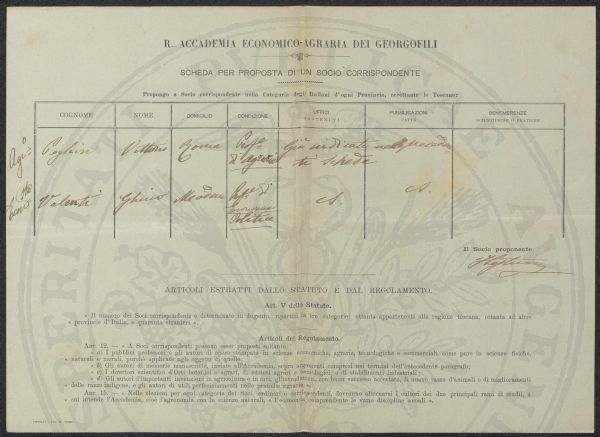 R. ACCADEMIA ECONOMICO-AGRARIA DEI GEORGOFILI
SCHEDA PER PROPOSTA DI UN SOCIO CORRISPONDENTE
Propongo a Socio corrispondente nella Categoria degli Italiani d'ogni Provincia, eccettuate le Toscane:
COGNOME NOME DOMICILIO CONDIZIONE UFFICI SOSTENUTI PUBBLICAZIONI FATTE BENEMERENZE SCIENTIFICHE O PRATICHE
Vittorio Roma Prof. Già indicati
d'Agraria scheda
Valenti Ghino Modena Prof. di
Economia
Politica
Il Socio proponente
ARTICOLI ESTRATTI DALLO STATUTO E DAL REGOLAMENTO.
Art. V dello Statuto.
« Il numero dei Soci corrispondenti è determinato in dugento, ripartiti in tre categorie: ottanta appartenenti alla regione toscana, ottanta ad altre
« provincie d'Italia, e quaranta stranieri ».
Articoli del Regolamento.
ART. 12. — « A Soci corrispondenti possono esser proposti soltanto:
« a) I pubblici professori e gli autori di opere stampate in scienze economiche, agraria, tecnologiche e commerciali, come pure in scienze fisiche,
« naturali e morali, purchè applicate agli oggetti di quelle;
« b) Gli autori di memorie manoscritte, inviate all'Accademia, sopra argomenti compresi nei termini dell'antecedente paragrafo;
« c) I direttori scientifici d'Orti botanici e agrari, di istituti agrari e tecnologici, e di stabilimenti industriali;
« d) Gli autori d'importanti invenzioni in agricoltura e in arti, gl'introduttori, con buon successo accertato, di nuove razze d'animali e di miglioramenti
« delle razze indigene, e gli autori di utili perfezionamenti nelle pratiche agrarie ».
ART. 15. — « Nelle elezioni per ogni categoria dei Soci, ordinari e corrispondenti, dovranno alternarsi i cultori dei due principali rami di studii, a
« cui intende l'Accademia, cioè l'agronomia con le scienze naturali, e l'economia comprendente le varie discipline sociali ».